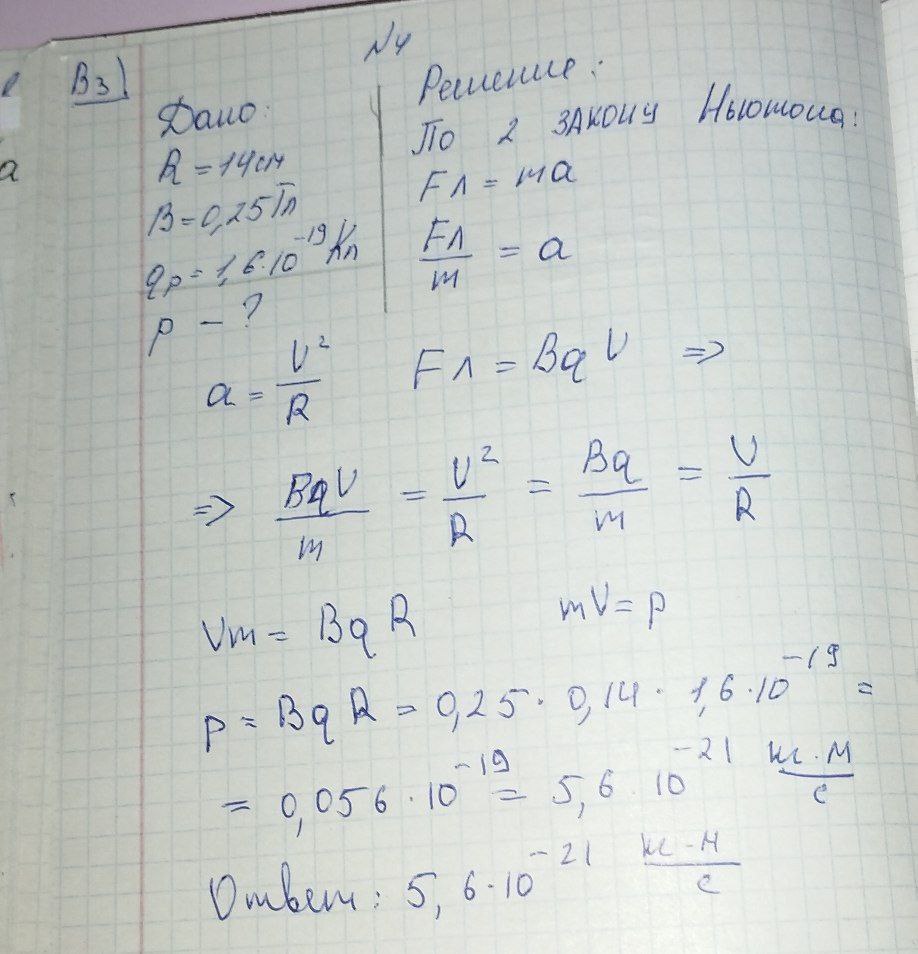 N4
В3)
Дано:
R = 14 см
B = 0,25 Тл
qp = 1,6·10⁻¹⁹ Кл
p - ?
Решение:
По 2 закону Ньютона:
Fл = ma
Fл/m = a
a = V²/R Fл = BqV =>
=> BqV/m = V²/R = Bq/m = V/R
Vm = BqR mV = p
p = BqR = 0,25 · 0,14 · 1,6·10⁻¹⁹ =
= 0,056·10⁻¹⁹ = 5,6·10⁻²¹ кг·м/с
Ответ: 5,6·10⁻²¹ кг·м/с